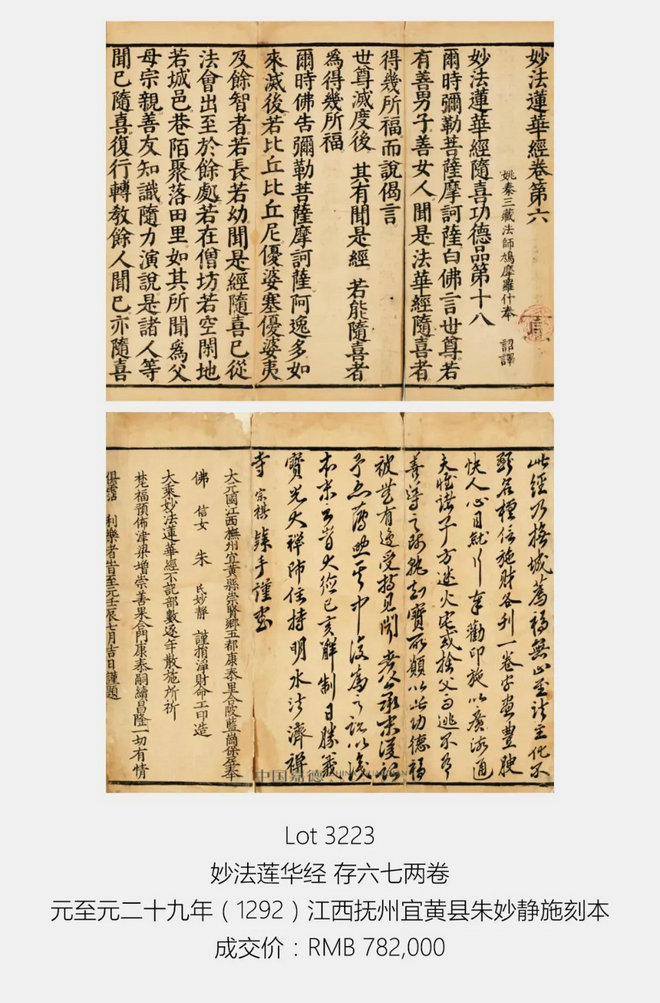 妙法蓮華經卷第六
姚秦三藏法師鳩摩羅什奉 詔譯
妙法蓮華經隨喜功德品第十八
爾時彌勒菩薩摩訶薩白佛言世尊若
有善男子善女人聞是法華經隨喜者
得幾所福而說偈言
世尊滅度後 其有聞是經 若能隨喜者
爲得幾所福
爾時佛告彌勒菩薩摩訶薩阿逸多如
來滅後若比丘比丘尼優婆塞優婆夷
及餘智者若長若幼聞是經隨喜已從
法會出至於餘處若在僧坊若空閑地
若城邑巷陌聚落田里如其所聞爲父
母宗親善友知識隨力演說是諸人等
聞已隨喜復行轉教餘人聞已亦隨喜
此經乃撫城萬福無山至法主化
名種信施財各刊一卷字畫豐腴
快人心目就
勸印施以廣流通
夫惟諸子方迷火宅或捨父而逃不
善
知寶所願以此功德福
被
有邊受持見聞
本末
大德已亥解制日勝義
寶光大禪師住持明水法濟禪
寺 宗祺 謹
大元國江西撫州宜黃縣崇賢鄉五都康泰里合
奉
佛 信女 朱 氏妙靜 謹捐淨財命工印造
大乘妙法蓮華經不記部數逐年散施所祈
梵福預佈津梁增崇善果合門康泰嗣續昌隆一切有情
俱霑 利樂者旹至元壬辰七月吉日謹題
中国嘉德
Lot 3223
妙法莲华经 存六七两卷
元至元二十九年（1292）江西抚州宜黄县朱妙静施刻本
成交价：RMB 782,000